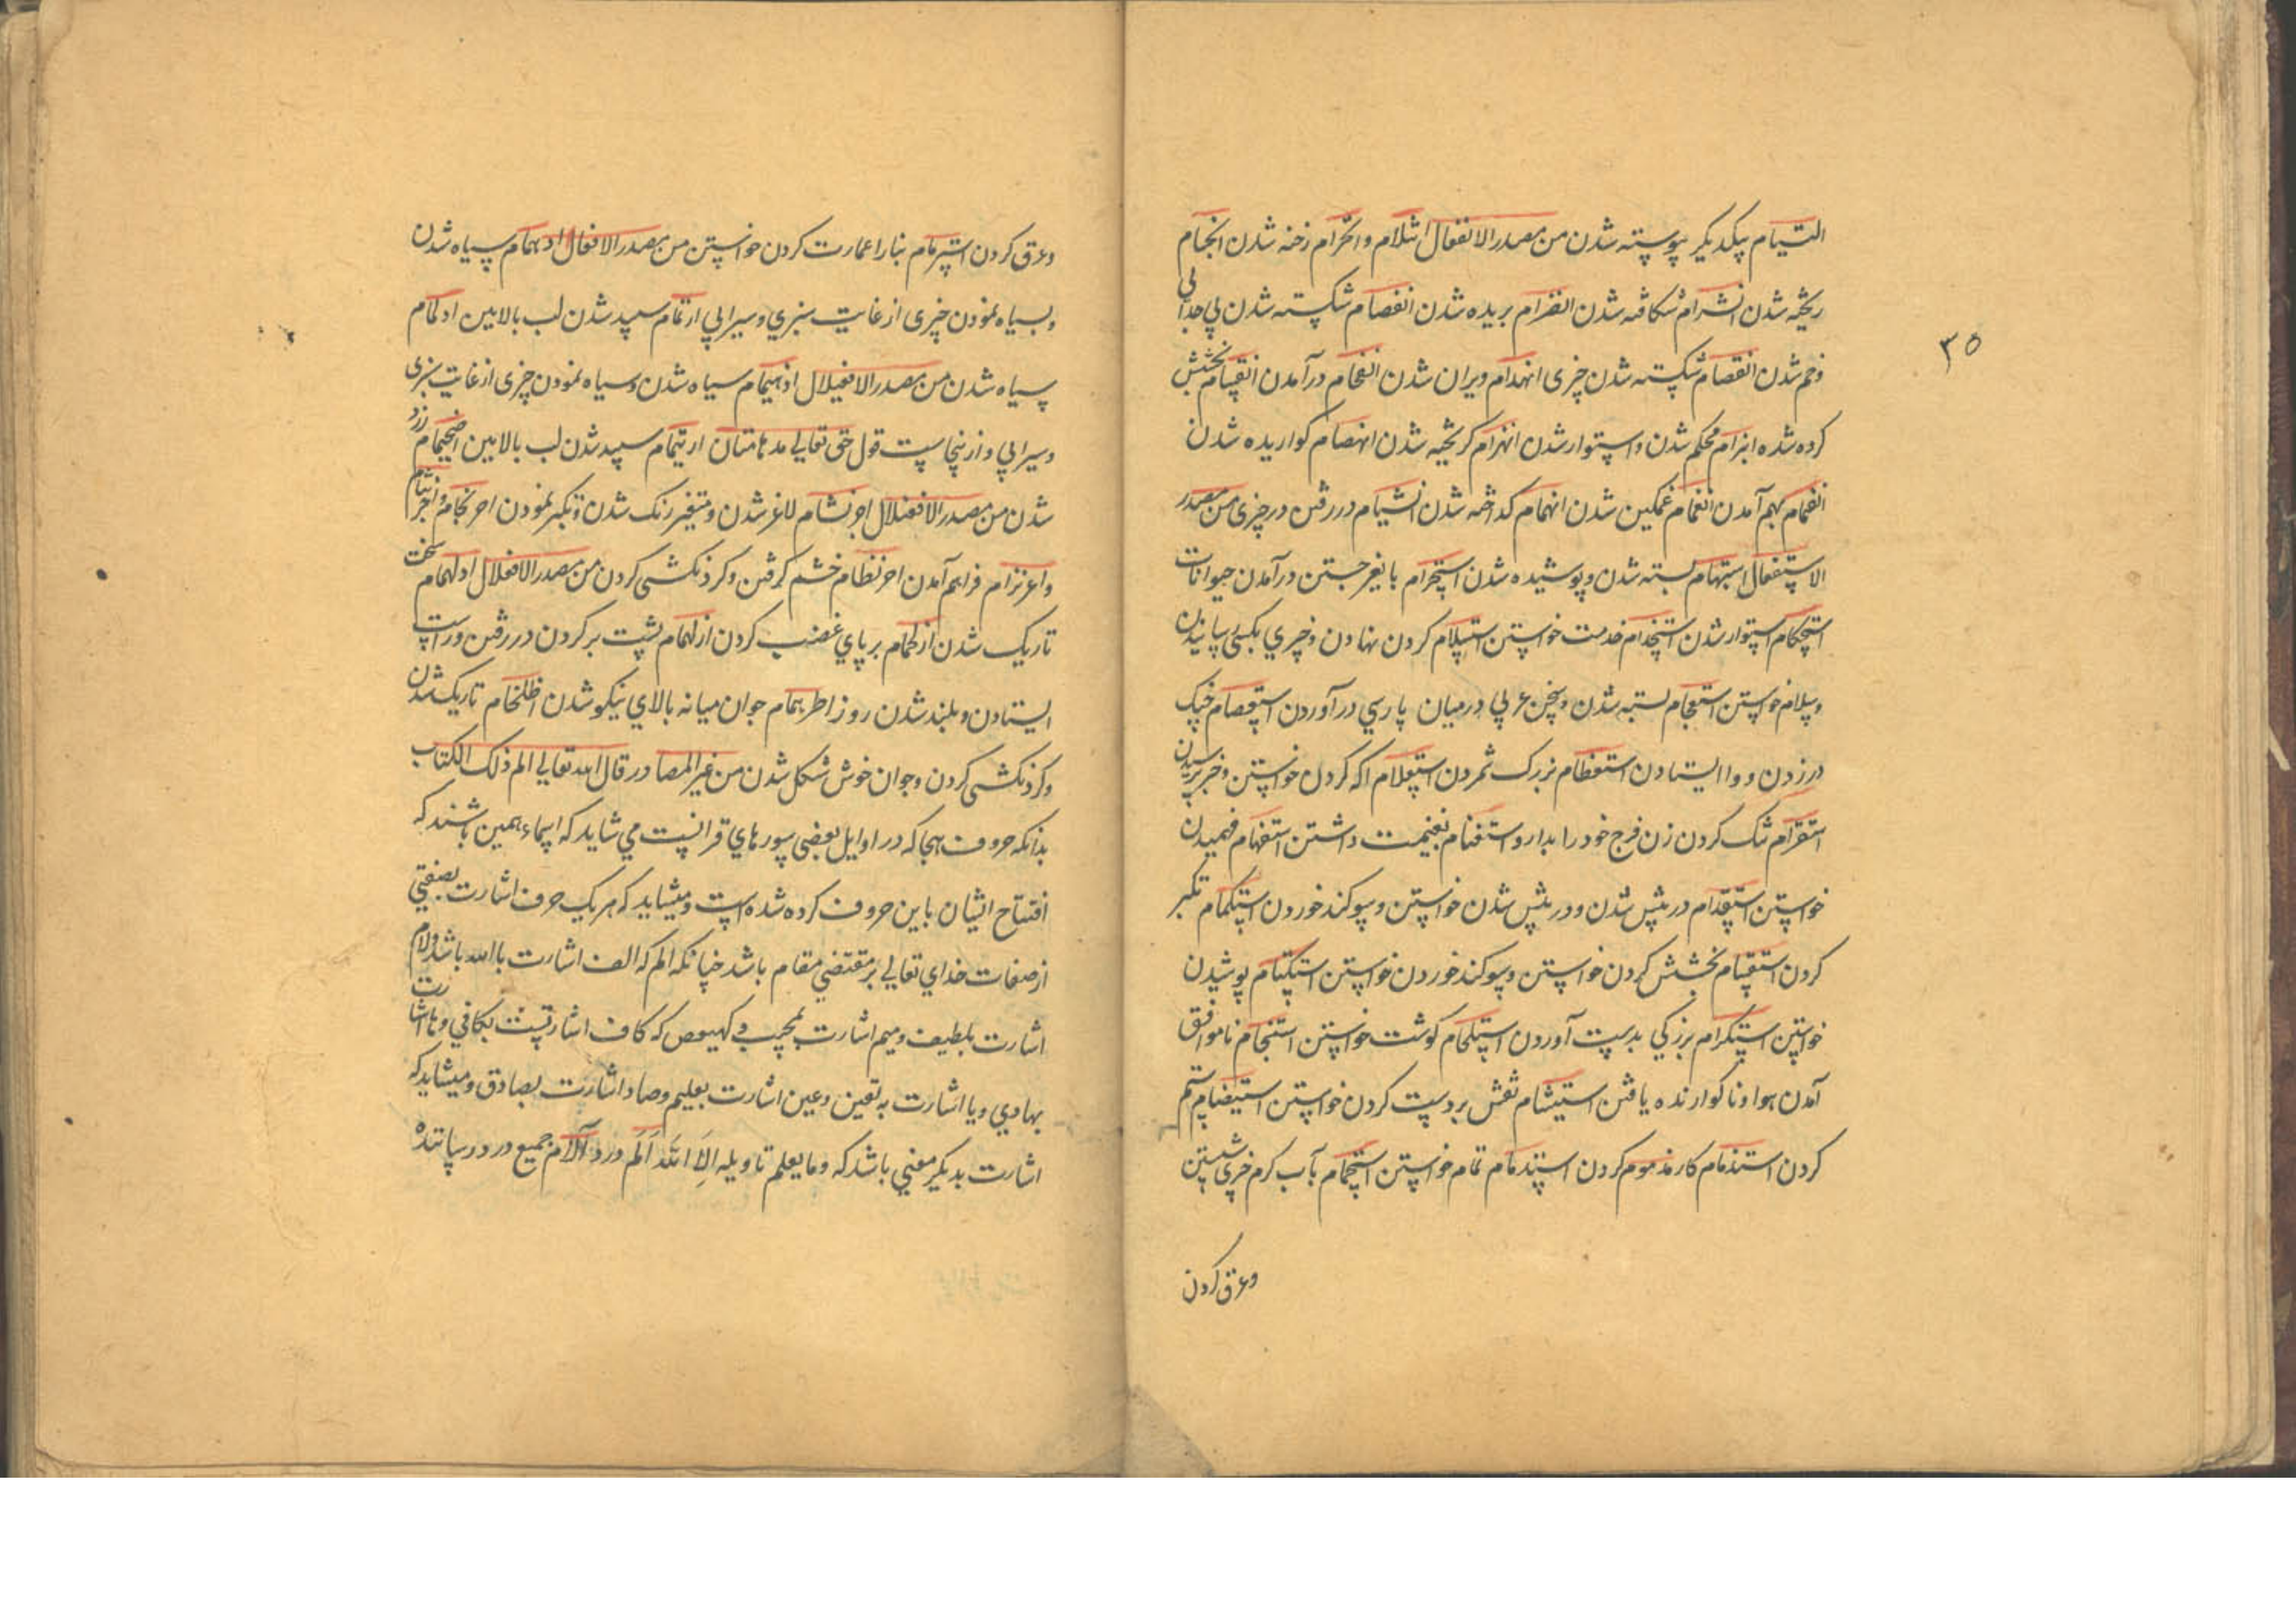 التیام پیکدیکر پیوسته شدن من مصدر الانفعال انثلام وانخرام رخنه شدن انجام
ریخته شدن انشرام شکافته شدن انصرام بریده شدن انفصام شکسته شدن بی جدایی
وخم شدن انقصام شکسته شدن چیزی انهدام ویران شدن انفحام درآمدن انقسام بخشش
کرده شده ابرام محکم شدن واستوار شدن انهزام کریخته شدن انهضام کواریده شدن
انضمام بهم آمدن انغمام غمکین شدن انهمام کداخته شدن انشیام در رفتن در چیزی من مصدر
الاستفعال استبهام بسته شدن وپوشیده شدن استحرام بانغر جستن درآمدن حیوانات
استحکام استوار شدن استخدام خدمت خواستن استسلام کردن نهادن وچیزی بکسی سپانیدن
وسلام خواستن استعجام بسته شدن وسخن عربی درمیان پارسی درآوردن استعصام چنک
درزدن و وا ایستادن استعظام بزرک شمردن استعلام اکه کردن خواستن وخبر پرسیدن
استفرام تنک کردن زن فرج خود را بدارو استغنام بغنیمت داشتن استفهام فهمیدن
خواستن استقدام در پیش شدن ودر پیش شدن خواستن وسوکند خوردن استکمام تکبر
کردن استقسام بخشش کردن خواستن وسوکند خوردن خواستن استکتام پوشیدن
خواستن استکرام بزرکی بدست آوردن استلحام کوشت خواستن استنجام ناموافق
آمدن هوا وناکوارنده یافتن استیشام نقش بر دست کردن خواستن استیضام ستم
کردن استذمام کار مذموم کردن استتمام تمام خواستن استحمام بآب کرم خریشتن
وعرق کردن
۳۵
وعرق کردن استرمام بنا را عمارت کردن خواستن من مصدر الافعال ادهمام سیاه شدن
وبسیاه نمودن چیزی از غایت سبزی وسیرابی ارتمام سپید شدن لب بالایین ادلمام
سیاه شدن من مصدر الافعیلال ادهیمام سیاه شدن وسیاه نمودن چیزی از غایت سبزی
وسیرابی وازینجاست قول حق تعالی مدهامتان ارثیمام سپید شدن لب بالایین اضحیمام زرد
شدن من مصدر الافعنلال اخرنشام لاغر شدن ومتغیر رنک شدن وتکبر نمودن احرنجام واجرنثام
واعرنزام فراهم آمدن اخرنطام خشم کرفتن وکردنکشی کردن من مصدر الافعلال ادلهمام سخت
تاریک شدن ازلحمام برپای غضب کردن ازلهمام پشت بر کردن در رفتن وراست
ایستادن وبلند شدن روز اطرهمام جوان میانه بالای نیکو شدن اظلخام تاریک شدن
وکردنکشی کردن وجوان خوش شکل شدن من غیر المصادر قال الله تعالی الم ذلک الکتاب
بدانکه حروف هجا که در اوایل بعضی سورهای قرانیست می شاید که اسماء همین باشند که
افتتاح ایشان باین حروف کرده شده است ومیشاید که هر یک حرف اشارت بصفتی
از صفات خدای تعالی بر مقتضی مقام باشد چنانکه الم که الف اشارت باالله باشد ولام
اشارت بلطیف ومیم اشارت بمجیب وکهیعص که کاف اشارتست بکافی وها اشارت
بهادی ویا اشارت به تعین وعین اشارت بعلیم وصاد اشارت بصادق ومیشاید که
اشارت بدیکر معنی باشد که وما یعلم تاویله الا الله اَلَم درد آلام جمیع درد رساننده